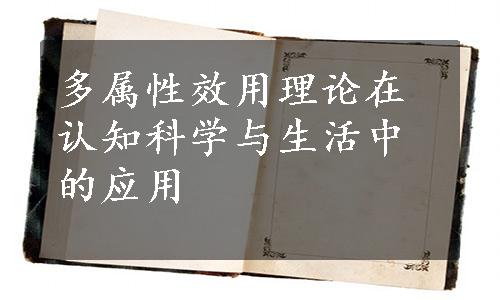 多属性效用理论在
认知科学与生活中
的应用